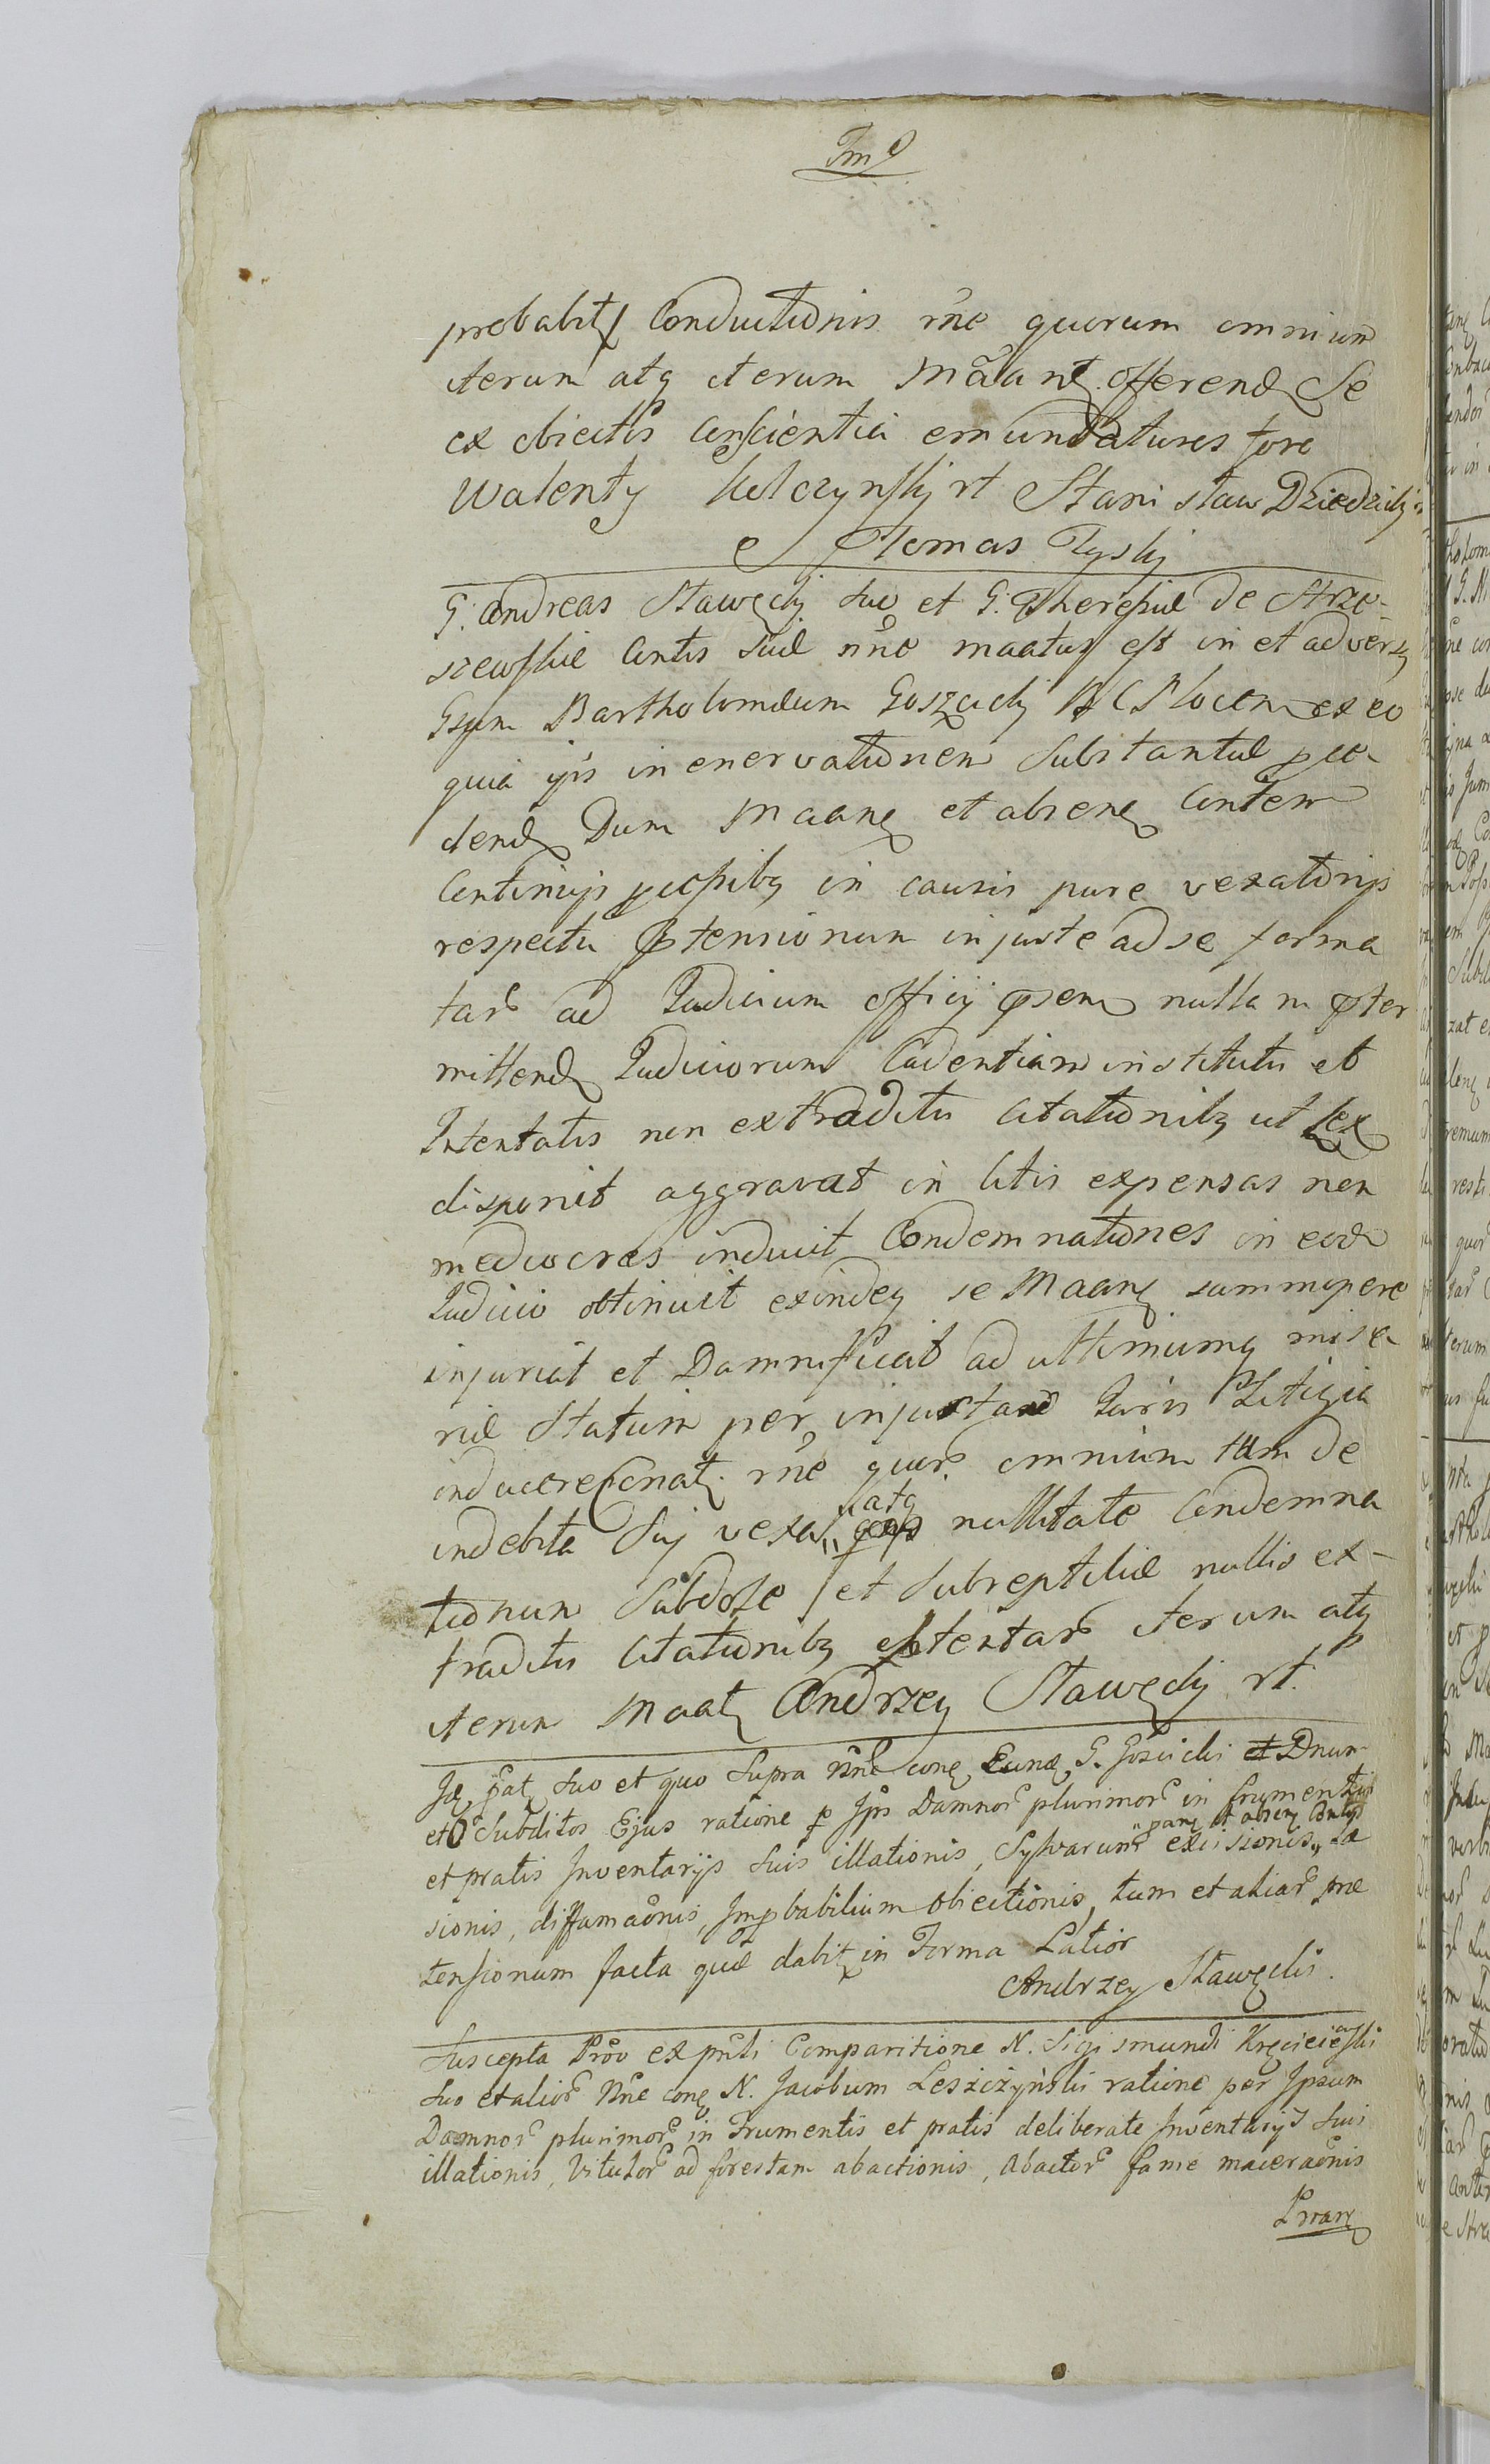 probabit Conductionis rñe quorum omnium
iterum atq iterum Mãant offerend Se
ex obiectis Conscientia emundaturos fore
Walenty Kelczynskj rt Stanisław Dziedzickj
Tomas Zyskj
G: Andreas Stawęckj Suo et G: Theresiæ de Strze-
szewskie Contis Suæ nñe maatus est in et advers
Gsum Bartholomæum Goszcickj B C Plocen ex eo
quia ijs in enervationem Substantiæ
dend Dum Maane et absene Contem
Continuis in causis pure vexatorijs
respectu ptensionum injuste ad se forma
tar ad Judicium officij psens nullam pter
mittend Judiciorum Cadentiam institutis et
Intentatis non extraditis Citationibq ut Lex
disponit aggravat in litis expensas non
mediocres induit Condemnationes in eod
Judicio obtinuit exindeq se Maane summopere
injuriat et Damnificat ad ultimumq mise
riæ Statum per injusta Juris Litigia
inducere Conat. rñe quor omnium tum de
indebita Sui vexa atq nullitate Condemna
tionum Subdole et Subreptitiæ nullis ex-
traditis Citationibq obtentar iterum atq
iterum Maat Andrzey Stawęckj rt.
Id pat Suo et quo Supra Nñe con Eund G. Goscicki et Dnum
et Subditos Ejus ratione p Ips Damnor plurimor in frumentis
et pratis Inventarijs Suis illationis, Sylvarum excisionis
sionis, diffamaõnis, Impbabilium Obiectionis, tum et aliar præ
tensionum facta quæ dabit in Forma Latior
Andrzey Stawęcki.
Suscepta Prõo ex pñti Comparitione N. Sigismundi Kręcieiewski
Suo et alior Nñe con N. Jacobum Leszczyński ratione per Ipsum
Damnor plurimor in Frumentis et pratis deliberate Inventarijs Suis
illationis, Vitulor ad forestam abactionis, Abactor fame maceraõnis